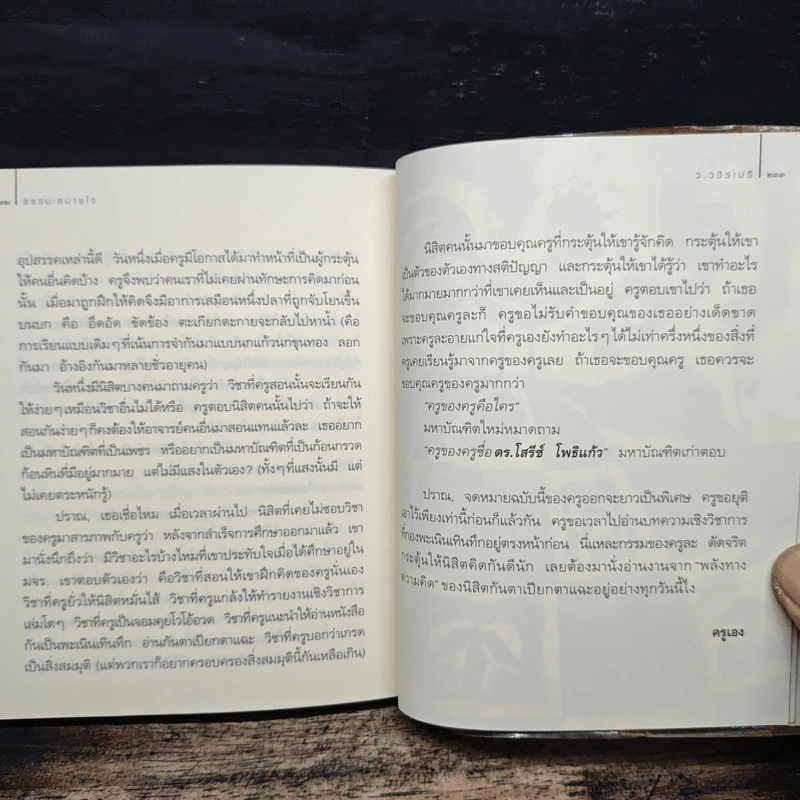 ๓๒ ธรรมะสบายใจ
อุปสรรคเหล่านี้ดี วันหนึ่งเมื่อครูมีโอกาสได้มาทำหน้าที่เป็นผู้กระตุ้น
ให้คนอื่นคิดบ้าง ครูจึงพบว่าคนเราที่ไม่เคยผ่านทักษะการคิดมาก่อน
นั้น เมื่อมาถูกฝึกให้คิดจึงมีอาการเสมือนหนึ่งปลาที่ถูกจับโยนขึ้น
บนบก คือ อึดอัด ขัดข้อง ตะเกียกตะกายจะกลับไปหาน้ำ (คือ
การเรียนแบบเดิมๆ ที่เน้นการจำกันมาแบบนกแก้วนกขุนทอง ลอก
กันมา อ้างอิงกันมาหลายชั่วอายุคน)
วันหนึ่งมีนิสิตบางคนมาถามครูว่า วิชาที่ครูสอนนั้นจะเรียนกัน
ให้ง่ายๆ เหมือนวิชาอื่นไม่ได้หรือ ครูตอบนิสิตคนนั้นไปว่า ถ้าจะให้
สอนกันง่ายๆ ก็คงต้องให้อาจารย์คนอื่นมาสอนแทนแล้วละ เธออยาก
เป็นมหาบัณฑิตที่เป็นเพชร หรืออยากเป็นมหาบัณฑิตที่เป็นก้อนกรวด
ก้อนหินที่มีอยู่มากมาย แต่ไม่มีแสงในตัวเอง? (ทั้งๆ ที่แสงนั้นมี แต่
ไม่เคยตระหนักรู้)
ปราณ, เธอเชื่อไหม เมื่อเวลาผ่านไป นิสิตที่เคยไม่ชอบวิชา
ของครูมาสารภาพกับครูว่า หลังจากสำเร็จการศึกษาออกมาแล้ว เขา
มานั่งนึกถึงว่า มีวิชาอะไรบ้างไหมที่เขาประทับใจเมื่อได้ศึกษาอยู่ใน
มจร. เขาตอบตัวเองว่า คือวิชาที่สอนให้เขาฝึกคิดของครูนั่นเอง
วิชาที่ครูยั่วให้นิสิตหมั่นไส้ วิชาที่ครูแกล้งให้ทำรายงานเชิงวิชาการ
เล่มโตๆ วิชาที่ครูเป็นจอมคุยโวโอ้อวด วิชาที่ครูแนะนำให้อ่านหนังสือ
กันเป็นพะเนินเทินทึก อ่านกันตาเปียกตาแฉะ วิชาที่ครูบอกว่าเกรด
เป็นสิ่งสมมุติ (แต่พวกเราก็อยากครอบครองสิ่งสมมุตินี้กันเหลือเกิน)
ว.วชิรเมธี ๒๓๓
นิสิตคนนั้นมาขอบคุณครูที่กระตุ้นให้เขารู้จักคิด กระตุ้นให้เขา
เป็นตัวของตัวเองทางสติปัญญา และกระตุ้นให้เขาได้รู้ว่า เขาทำอะไร
ได้มากมายมากกว่าที่เขาเคยเห็นและเป็นอยู่ ครูตอบเขาไปว่า ถ้าเธอ
จะขอบคุณครูละก็ ครูขอไม่รับคำขอบคุณของเธออย่างเด็ดขาด
เพราะครูละอายแก่ใจที่ครูเองยังทำอะไรๆ ได้ไม่เท่าครึ่งหนึ่งของสิ่งที่
ครูเคยเรียนรู้มาจากครูของครูเลย ถ้าเธอจะขอบคุณครู เธอควรจะ
ขอบคุณครูของครูมากกว่า
“ครูของครูคือใคร”
มหาบัณฑิตใหม่หมาดถาม
“ครูของครูชื่อ ดร.โสรีช์ โพธิแก้ว” มหาบัณฑิตเก่าตอบ
ปราณ, จดหมายฉบับนี้ของครูออกจะยาวเป็นพิเศษ ครูขอยุติ
เอาไว้เพียงเท่านี้ก่อนก็แล้วกัน ครูขอเวลาไปอ่านบทความเชิงวิชาการ
ที่กองพะเนินเทินทึกอยู่ตรงหน้าก่อน นี่แหละกรรมของครูละ ดัดจริต
กระตุ้นให้นิสิตคิดกันดีนัก เลยต้องมานั่งอ่านงานจาก “พลังทาง
ความคิด” ของนิสิตกันตาเปียกตาแฉะอยู่อย่างทุกวันนี้ไง
ครูเอง